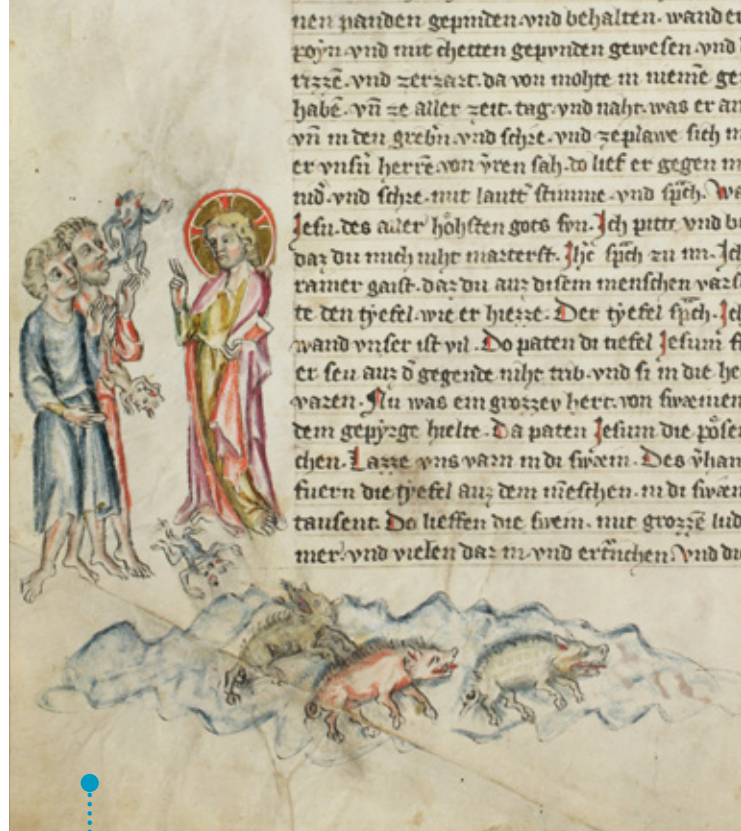 nen panden gepunden vnd behalten. wand er
poẏn vnd mit chetten gepvnden gewesen vnd
vnd zerzart. da von mohte in nieme ge
habē. vn̄ ze aller zeit. tag vnd naht. was er
vn̄ in den grebn̄. vnd schre. vnd zeplawe sich
er vnsn̄ herrē. von ẏren sah. do lief er gegen
vnd schre. mit lautt̄ stimme. vnd sp̄ch. Wa
Jesu. des aller hòhsten gots svn. Jch pitte vnd
daz du mich niht marterst. Jh̄c sp̄ch zu im. Jch
rainer gaist. daz du auz disem menschen varst
te den tẏefel. wie er hiezze. Der tẏefel sp̄ch. Jch
wand vnser ist vil. Do paten di tiefel Jesum
er seu auz d̄ gegende niht trib. vnd si in die he
varen. Nu was ein grozzev hert. von swæinen
dem gepẏrge hielte. Da paten Jesum die pòsen
chen. Lazze vns varn in di swæin. Des v̄han
fuern die tẏefel auz dem mēschen. in di swæin
tausent. Do lieffen die swein. mit grozzē lud
mer. vnd vielen dar in. vnd ertrūchen. Vnd di